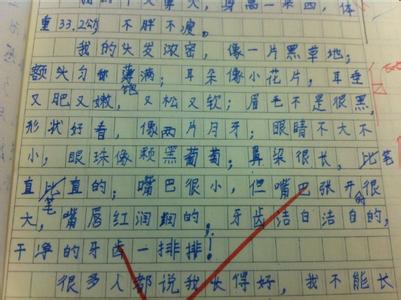 身高一米四，体
重33.2公斤 不胖不瘦。
我的头发浓密，像一片黑草地；
额头匀称饱满；耳朵像小花片，耳垂
又肥又嫩，又松又软；眉毛不是很黑，
形状好看，像两片月牙；眼睛不大不
小，眼珠像颗黑葡萄；鼻梁很长，比笔
直比直的；嘴巴很小，但嘴巴张开时很
大，嘴唇红润润的，牙齿洁白洁白的，
干净的牙齿一排排！
很多人都说我长得好，我不能长